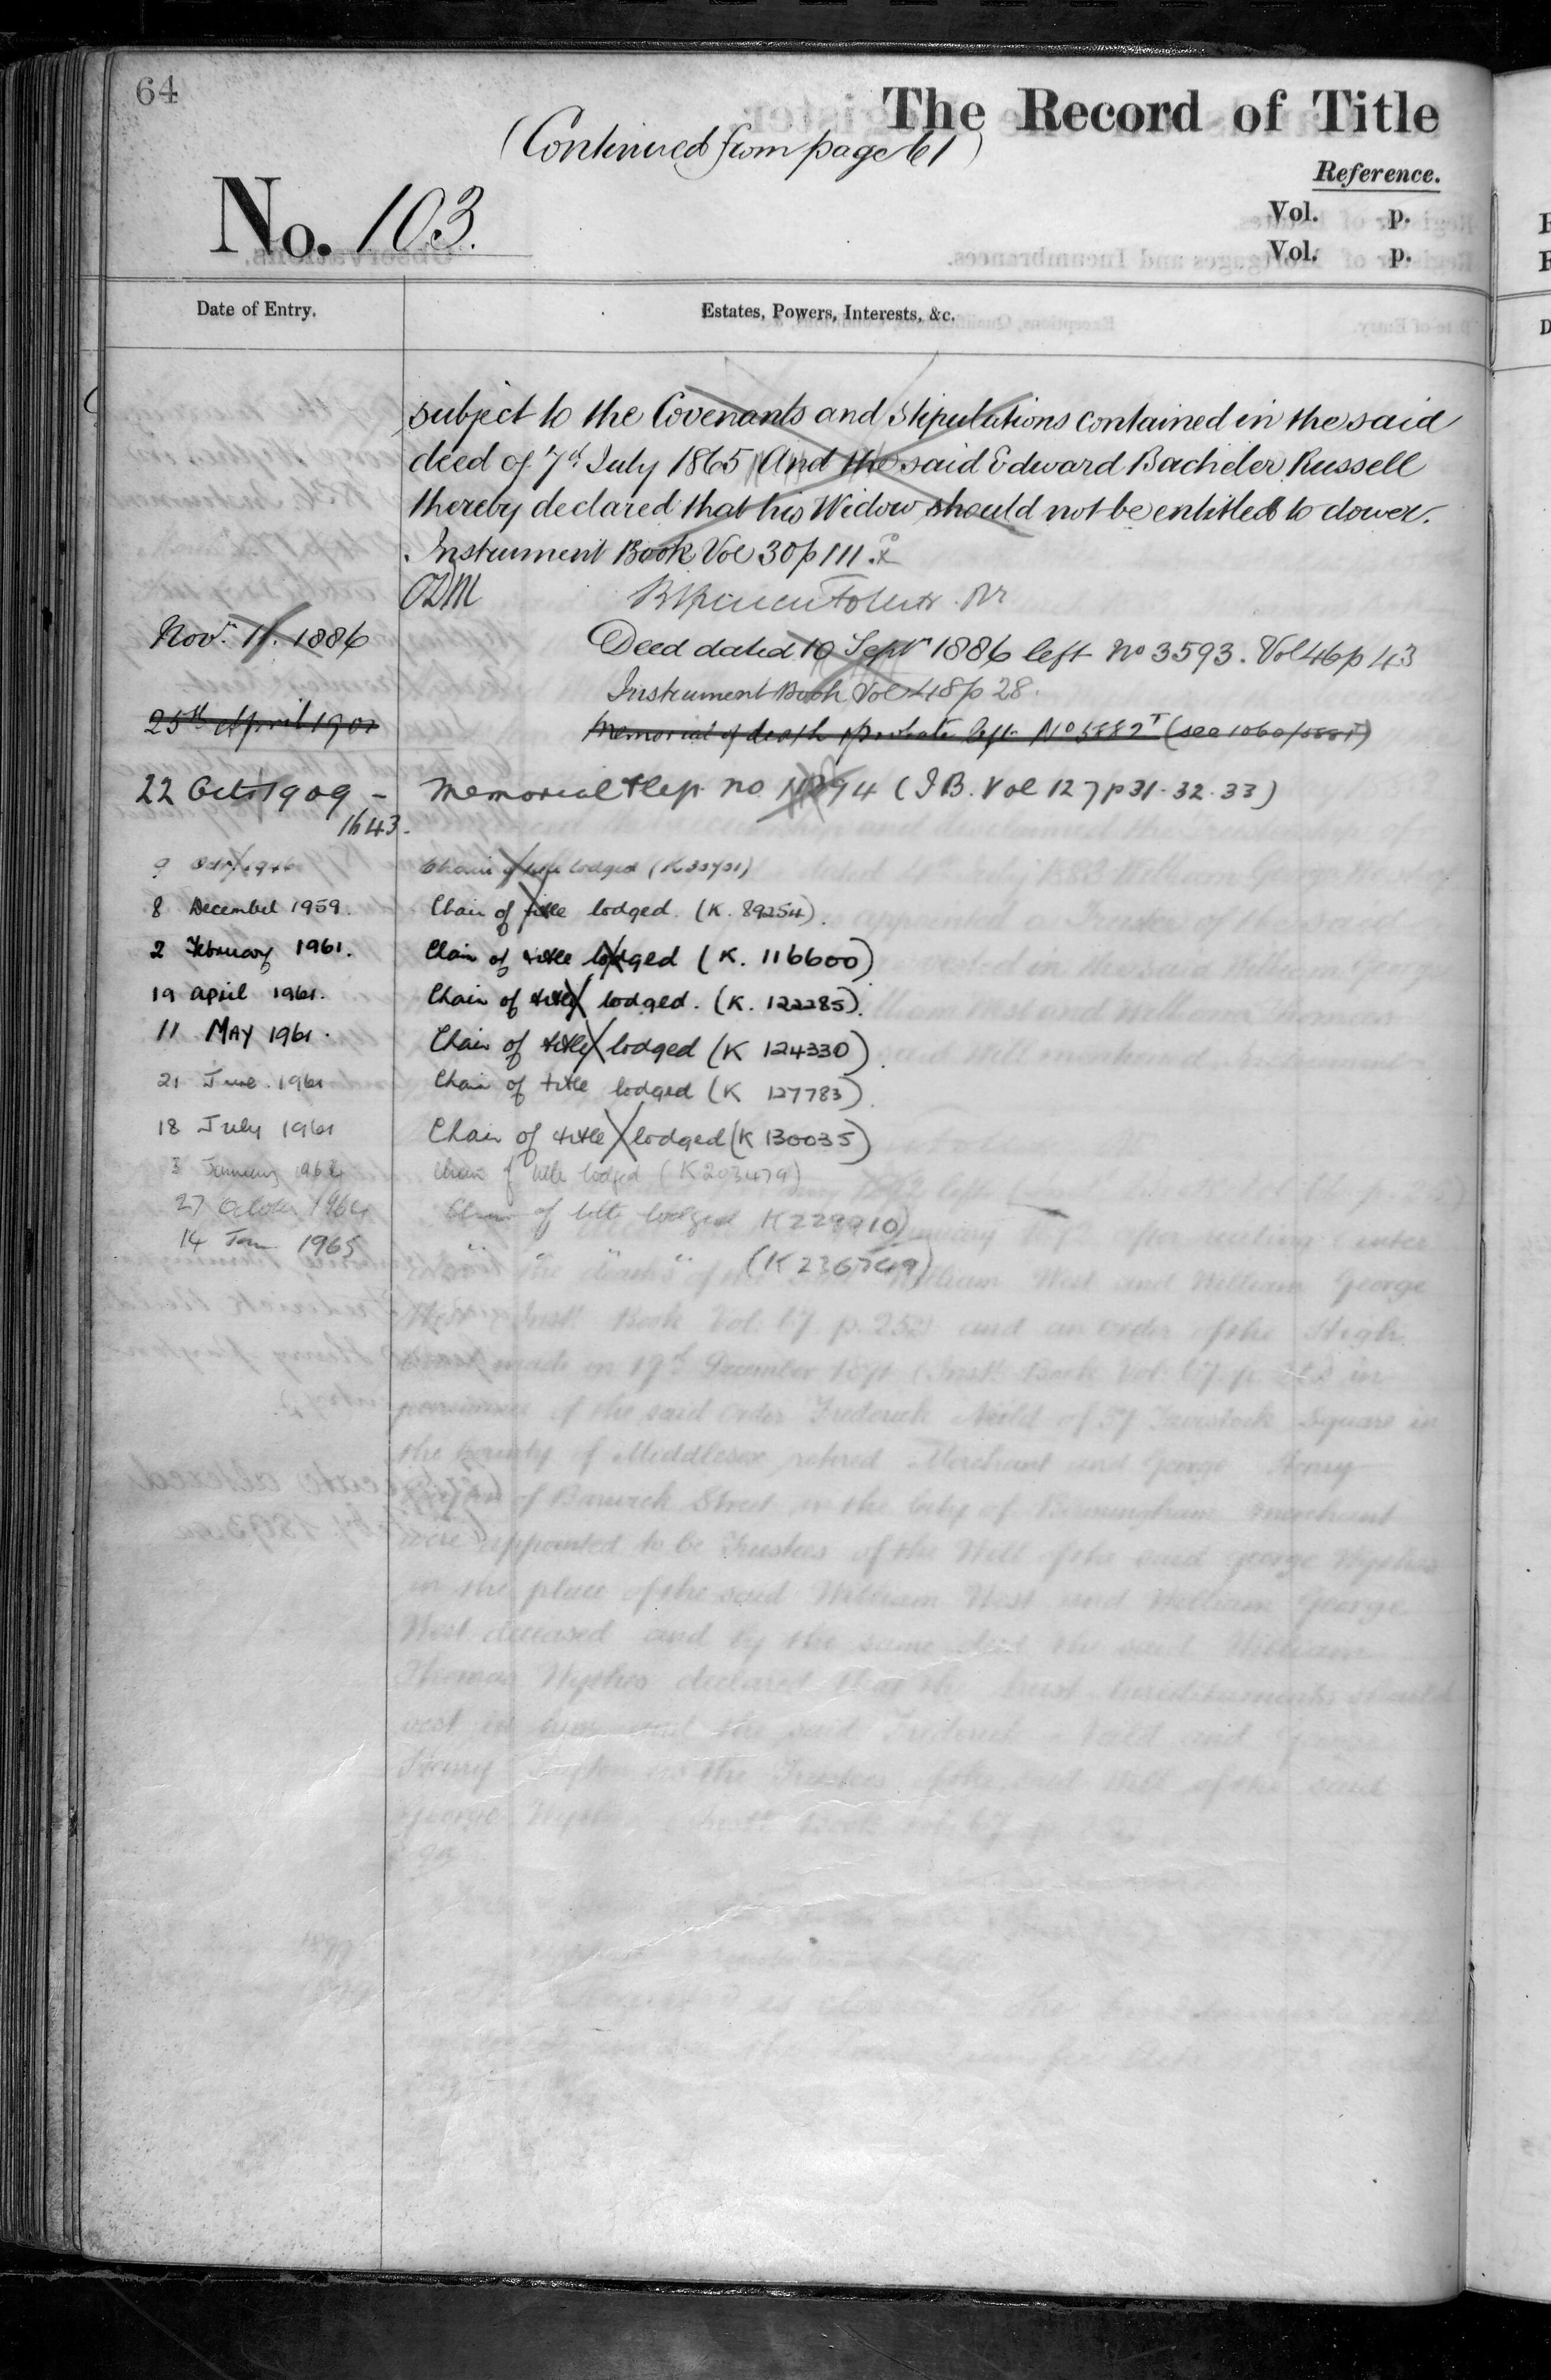 64
The Record of Title
(Continued from page 61)
Reference.
No. 103.
Vol. p.
Vol. p.
Date of Entry.
Estates, Powers, Interests, &c.
subject to the Covenants and Stipulations contained in the said
deed of 7th July 1865 And the said Edward Bacheler Russell
thereby declared that his Widow should not be entitled to dower.
Instrument Book Vol 30 p 111.
Nov. 11. 1886 Deed dated 10 Septr 1886 left No 3593. Vol 46 p 43
Instrument Book Vol 48 p 28.
25th April 1901 Memorial of death & probate left No 5882T (see 1060/
22 Oct 1909 - Memorial & left no. 11294 (I B. Vol 127 p 31-32-33)
1643.
9 Chain of title lodged
8 December 1959. Chain of title lodged. (K. 89254).
2 February 1961. Chain of title lodged (K. 116600)
19 April 1961. Chain of title lodged. (K. 122285).
11 MAY 1961. Chain of title lodged (K 124330).
21 June. 1961 Chain of title lodged (K 127783).
18 July 1961 Chain of title lodged (K 130035)
3 January 1964 Chain of title lodged (K203479)
27 October 1964 Chain of title lodged K229910)
14 Jan 1965 " " " " (K236749)